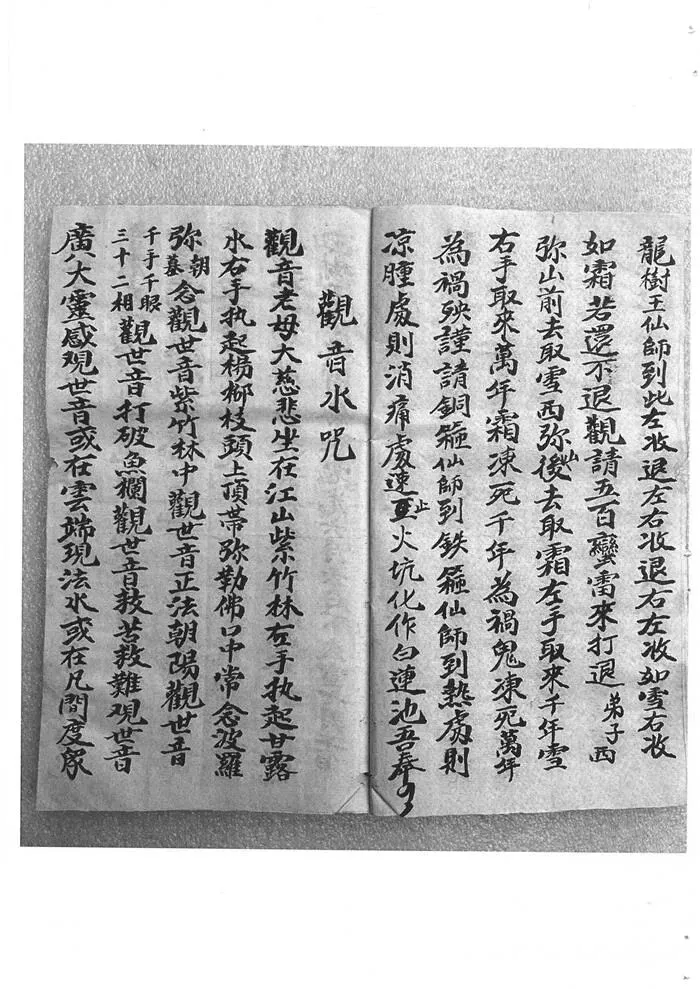 龍樹王仙師到此左收退左右收退右左收如雪右收
如霜若還不退觀請五百蠻雷來打退弟子西
弥山前去取雪西弥山後去取霜左手取來千年雪
右手取來萬年霜凍死千年為禍鬼凍死萬年
為禍殃謹請銅箍仙師到鉄箍仙師到熱處則
凉腫處則消痛處速止火坑化作白蓮池吾奉
觀音水咒
觀音老母大慈悲坐在江山紫竹林右手执起甘露
水右手执起楊柳枝頭上頂帯弥勒佛口中常念波羅
弥朝暮念觀世音紫竹林中觀世音正法朝陽觀世音
千手千眼三十二相觀世音打破魚欄觀世音救苦救難观世音
廣大靈感观世音或在雲端現法水或在凡間度衆